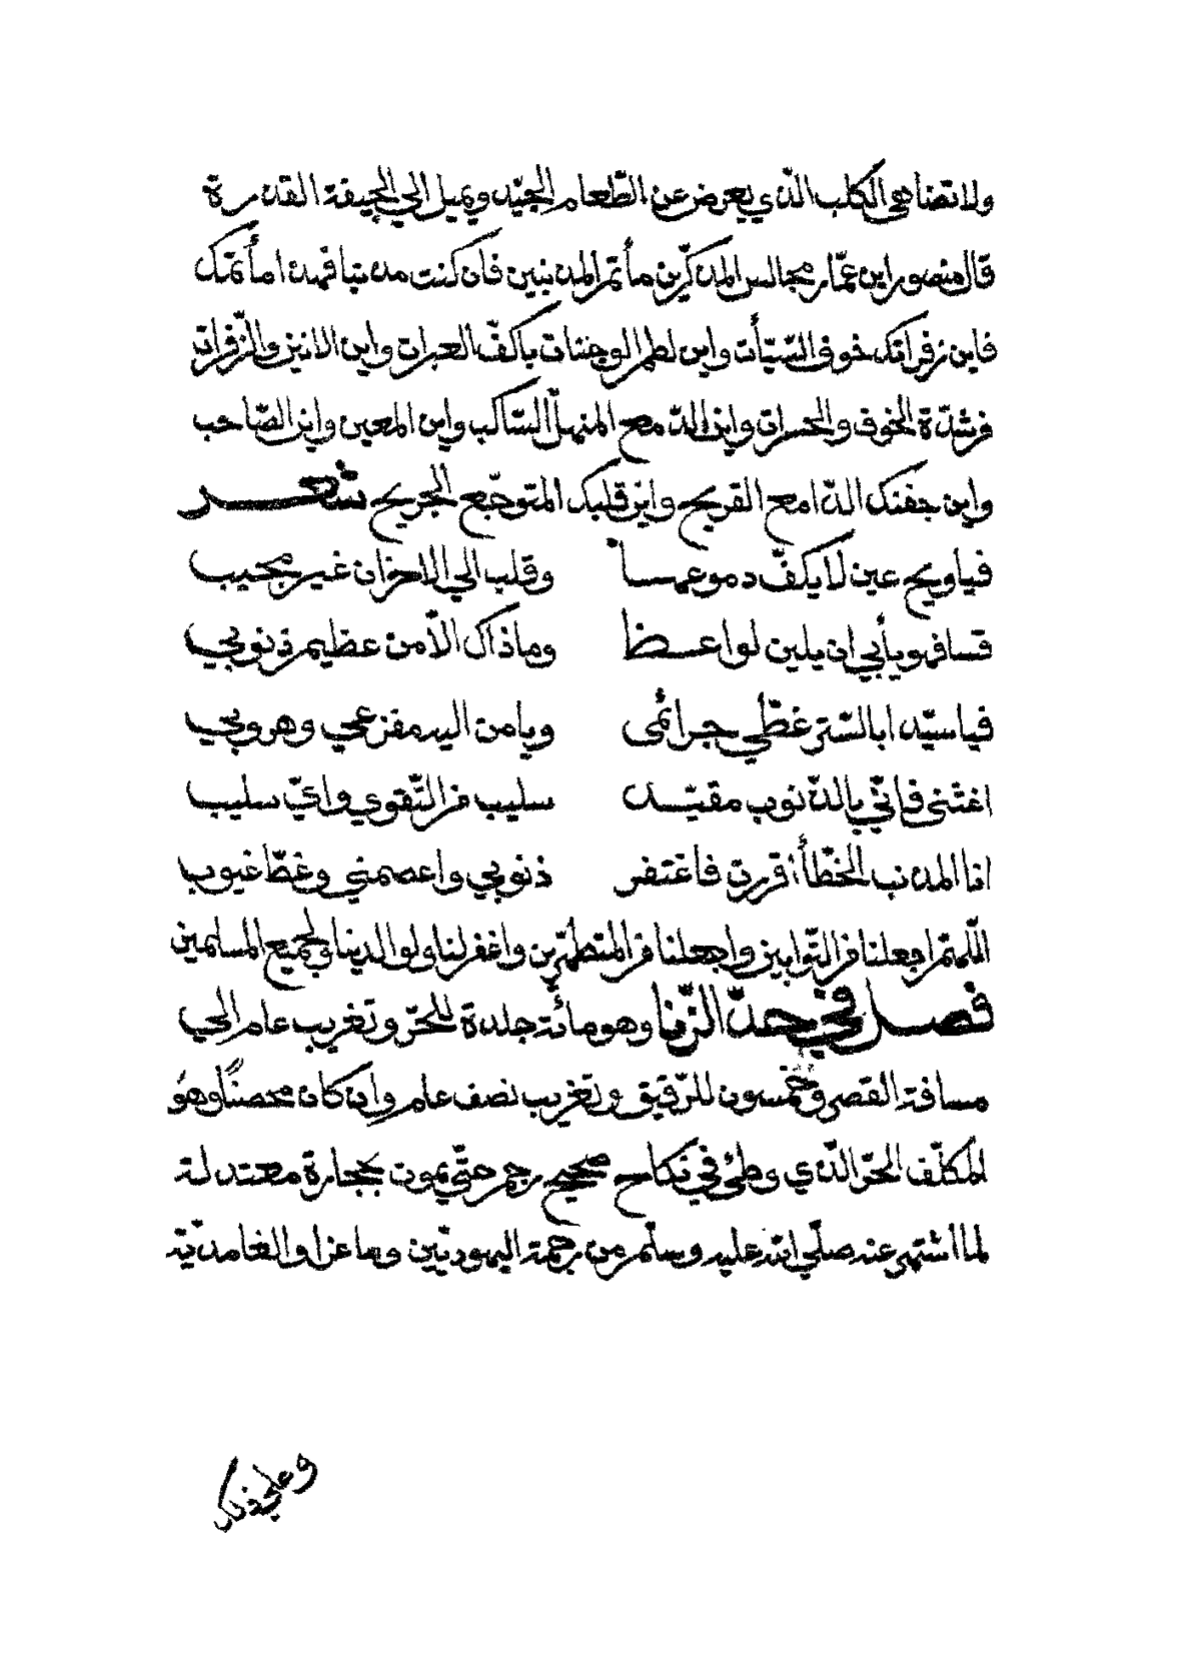 ولا تضاهي الكلب الّذي يعرض عن الطّعام الجيّد ويميل الي الجيفة القذرة
قال منصور ابن عمّار مجالس المذكّرين مأتم المذنبين فان كنت مذنبا فهذا مأتمك
فاين زفراتك خوف السّيّأت واين لطم الوجنات باكفّ العبرات واين الانين والزّفرات
من شدّة الخوف والحسرات واين الدّمع المنهلّ السّاكب واين المعين واين الصّاحب
واين جفنك الدّامع القريح واين قلبك المتوجّع الجريح شعر
فياويح عين لا يكفّ دموعها وقلب الي الاحزان غير مجيب
قسا فهو يأبي ان يلين لواعظ وما ذاك الّا من عظيم ذنوبي
فيا سيّدا بالسّتر غطّي جرائمي ويا من اليه مفزعي وهروبي
اغثني فانّي بالذّنوب مقيّد سليب من التّقوي وايّ سليب
انا المذنب الخطّأ اقررت فاغتفر ذنوبي واعصمني وغطّ عيوب
اللّهمّ اجعلنا من التّوابين واجعلنا من المتطهّرين واغفر لنا ولوالدينا ولجميع المسلمين
فصل في حدّ الزّنا وهو مائة جلدة للحرّ وتغريب عام الي
مسافة القصر وخمسون للرّقيق وتغريب نصف عام وان كان محصنًا وهو
المكلّف الحرّ الّذي وطئ في نكاح صحيح رجم حتّي يموت بحجارة معتدلة
لما اشتهر عنه صلّي الله عليه وسلّم من رجمة اليهوديّين وماعزا والغامديّة
وعلي ذلك